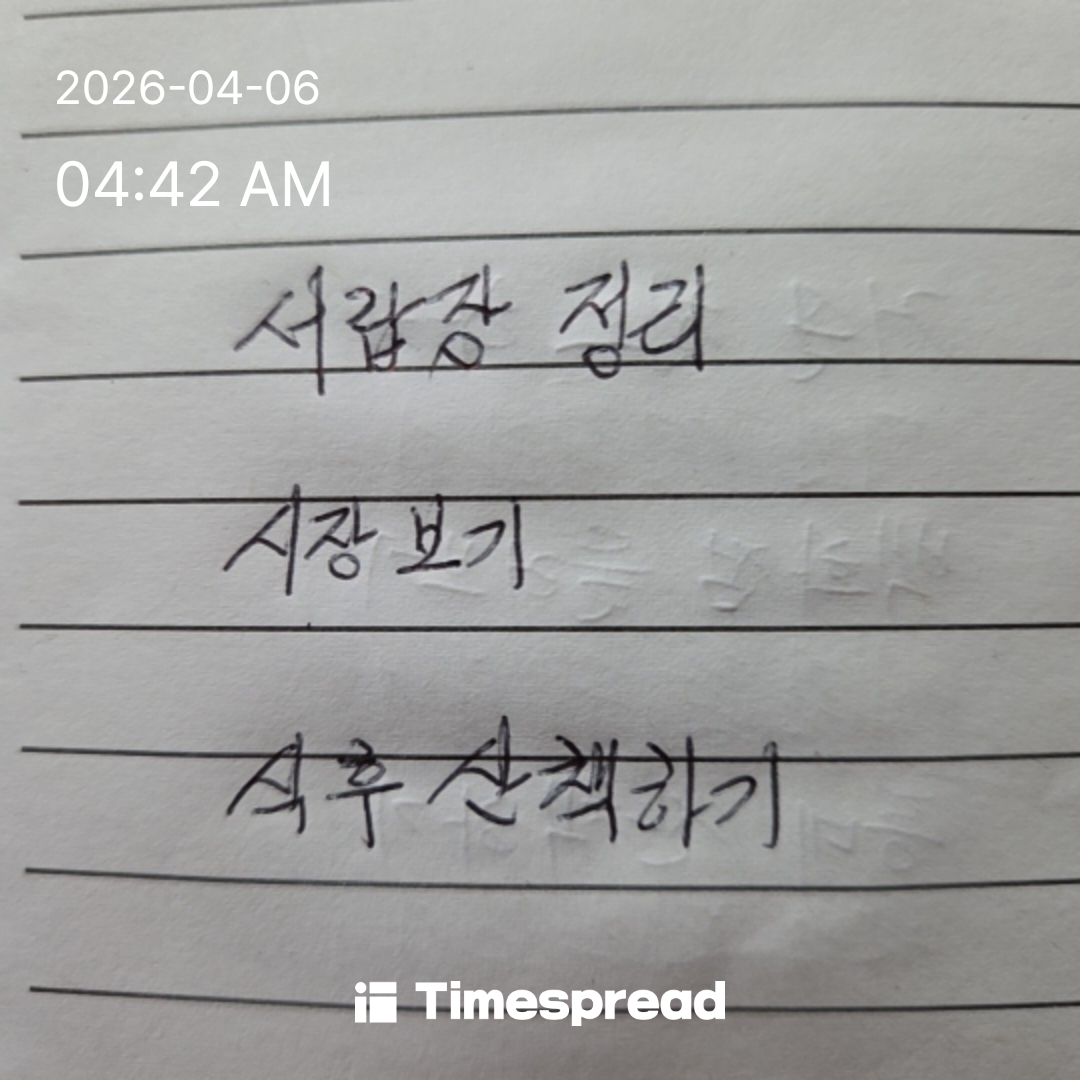 2026-04-06
04:42 AM
서랍장 정리
시장 보기
식후 산책하기
Timespread